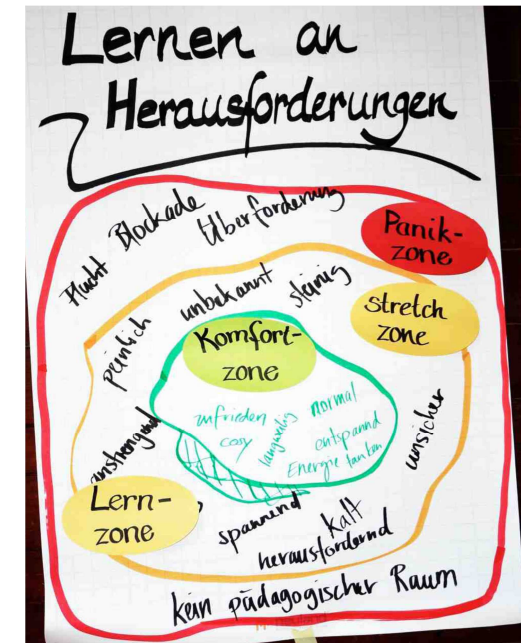 Lernen an
Herausforderungen
Flucht Blockade Überforderung
Panik-
zone
peinlich unbekannt steinig
stretch
zone
Komfort-
zone
zufrieden
cosy
langweilig
normal
entspannd
Energie tanken
anstrengend
unsicher
Lern-
zone
spannend
kalt
herausfordernd
kein pädagogischer Raum
neuland